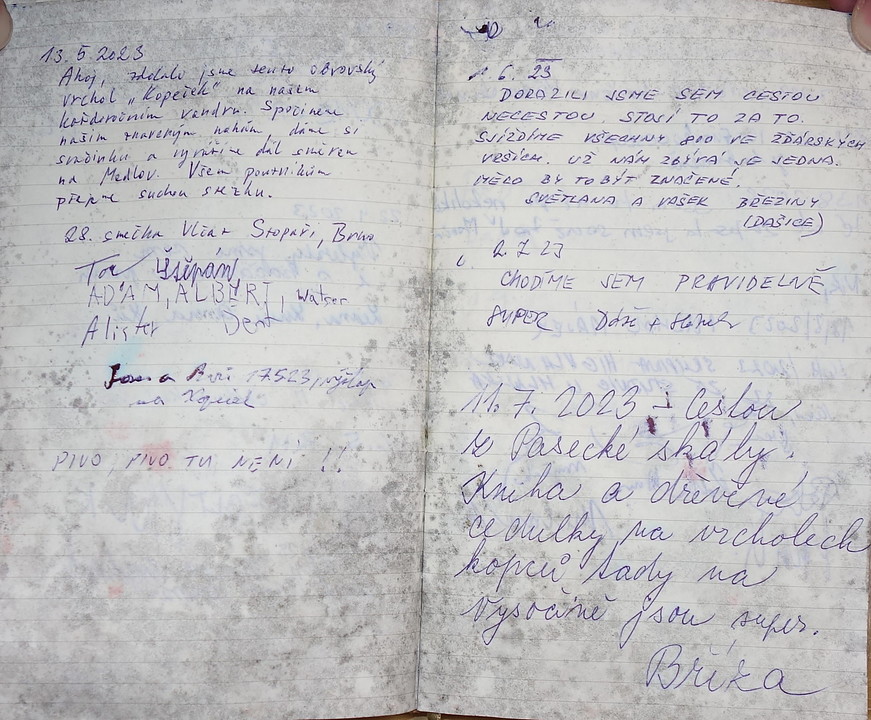 13.5.2023
Ahoj, zdolali jsme tento obrovský
vrchol „Kopeček" na našem
každoročním vandru. Spočineme
našim znaveným nohám, dáme si
svačinku a vyrážíme dál směrem
na Medlov. Všem poutníkům
přejeme suchou stezku.
28. smečka Vlčat Stopaři, Brno
Štěpán
ADAM, ALBERT, Watser
Alister Dent
Jana 17.5.23, výšlap
na
PIVO, PIVO TU NENÍ !!
6. 23
DORAZILI JSME SEM CESTOU
NECESTOU. STOJÍ TO ZA TO.
SJÍZDÍME VŠECHNY 800 VE ŽĎÁRSKÝCH
VRŠÍCH. UŽ NÁM ZBÝVÁ JE JEDNA.
MĚLO BY TO BÝT ZNAČENÉ.
SVĚTLANA A VAŠEK BŘEZINY
(DAŠICE)
2.7.23
CHODÍME SEM PRAVIDELNĚ
SUPER
11.7. 2023 - Cestou
z Pasecké skály.
Kniha a dřevěné
cedulky na vrcholech
kopců tady na
Vysočině jsou super.
Bříza